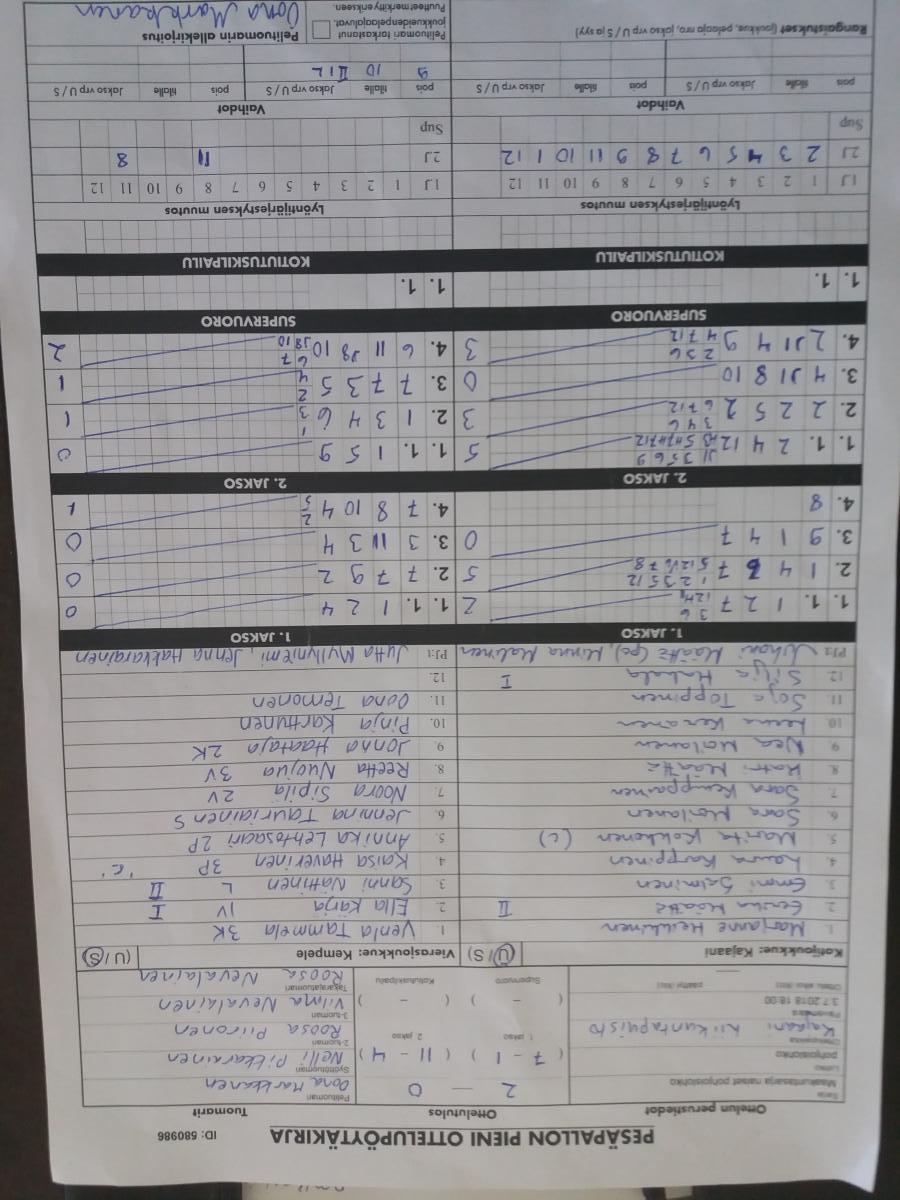 PESÄPALLON PIENI OTTELUPÖYTÄKIRJA ID: 580986
Ottelun perustiedot Ottelutulos Tuomarit
Sarja
Maakuntasarja naiset pohjoislohko
Lohko
pohjoislohko
Ottelupaikka
Kajaani liikuntapuisto
Päivämäärä
3.7.2018 18:00
Ottelu alkoi (klo) päättyi (klo)
2 — 0
1. jakso 2. jakso
( 7 - 1 ) ( 11 - 4 )
Supervuoro Kotiutuskilpailu
( - ) ( - )
Pelituomari
Oona Markkanen
Syöttötuomari
Nelli Pikkarainen
2-tuomari
Roosa Piironen
3-tuomari
Vilma Nevalainen
Takarajatuomari
Roosa Nevalainen
Kotijoukkue: Kajaani (U / S) Vierasjoukkue: Kempele (U / S)
1. Marjanne Heikkinen
2. Eerika Määttä II
3. Emmi Salminen
4. Laura Karppinen
5. Marita Kokkonen (c)
6. Sara Moilanen
7. Sara Kemppainen
8. Katri Määttä
9. Nea Moilanen
10. Leena Keränen
11. Saija Toppinen
12. Silja Hakala I
PJ:t Juhani Määttä (pc), Minna Malinen
1. Venla Tammela 3K
2. Ella Karja IV I
3. Sanni Nattinen L II
4. Kaisa Haverinen 3P 'C'
5. Annika Lehtosaari 2P
6. Jenniina Tauriainen S
7. Noora Sipilä 2V
8. Reetta Nuojua 3V
9. Jonna Haataja 2K
10. Pinja Karttunen
11. Oona Temonen
12.
PJ:t Jutta Myllyniemi, Jenna Hakkarainen
1. JAKSO 1. JAKSO
1. 1. 1 2 7 2
2. 1 4 6 7 5
3. 9 1 4 7 0
4. 8
1. 1. 1 2 4 0
2. 7 7 9 2 0
3. 3 11 3 4 0
4. 7 8 10 4 1
2. JAKSO 2. JAKSO
1. 1. 2 4 12 5
2. 2 2 5 2 3
3. 4 11 8 10 0
4. 2 11 4 9 3
1. 1. 1 5 9 0
2. 1 3 4 6 1
3. 7 7 3 5 1
4. 6 11 8 10 2
SUPERVUORO SUPERVUORO
1. 1. 1. 1.
KOTIUTUSKILPAILU KOTIUTUSKILPAILU
Lyöntijärjestyksen muutos Lyöntijärjestyksen muutos
1.J 1 2 3 4 5 6 7 8 9 10 11 12 1.J 1 2 3 4 5 6 7 8 9 10 11 12
2.J 2 3 4 5 6 7 8 9 11 10 1 12 2.J 11 8
Sup Sup
Vaihdot Vaihdot
pois tilalle Jakso vrp U / S pois tilalle Jakso vrp U / S pois tilalle Jakso vrp U / S pois tilalle Jakso vrp U / S
9 10 II 1 L
Rangaistukset (joukkue, pelaaja nro, jakso vrp U / S ja syy)
Pelituomari tarkastanut
joukkueidenpelaajaluvat.
Puutteet merkitty erikseen.
Pelituomarin allekirjoitus
Oona Markkanen